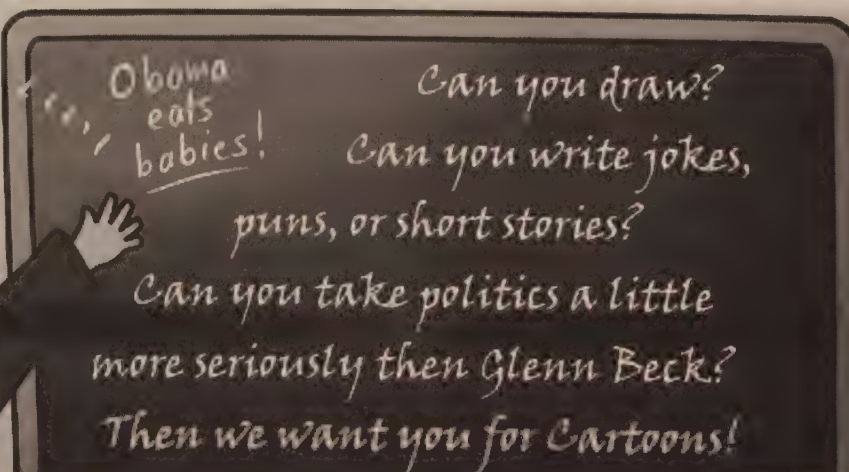 Oboma
eats
babies!
Can you draw?
Can you write jokes,
puns, or short stories?
Can you take politics a little
more seriously then Glenn Beck?
Then we want you for Cartoons!